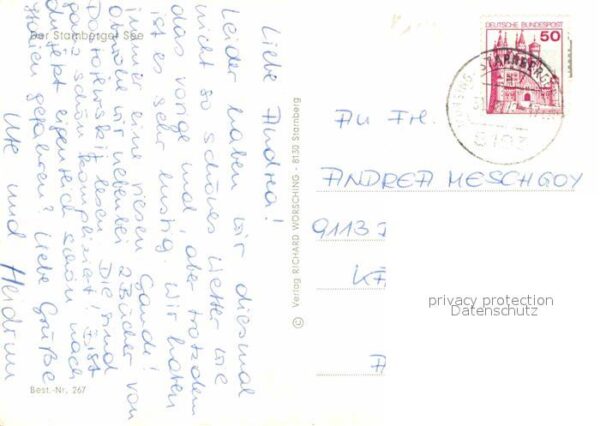 Der Starnberger See
Liebe Andrea!
Leider haben wir diesmal
nicht so schönes Wetter wie
das vorige mal, aber trotzdem
ist es sehr lustig. Wir haben
immer eine riesen Gaude!
obwohl wir nebenbei 2 Bücher von
lesen. Die sind
ganz schön kompliziert! Bist
du jetzt eigentlich schon nach
gefahren? Liebe Grüße
Ute und Heidrun
Best.-Nr. 267
© Verlag RICHARD WÖRSCHING · 8130 Starnberg
DEUTSCHE BUNDESPOST
50
STARNBERG
An Frl.
ANDREA MESCHGOY
privacy protection
Datenschutz